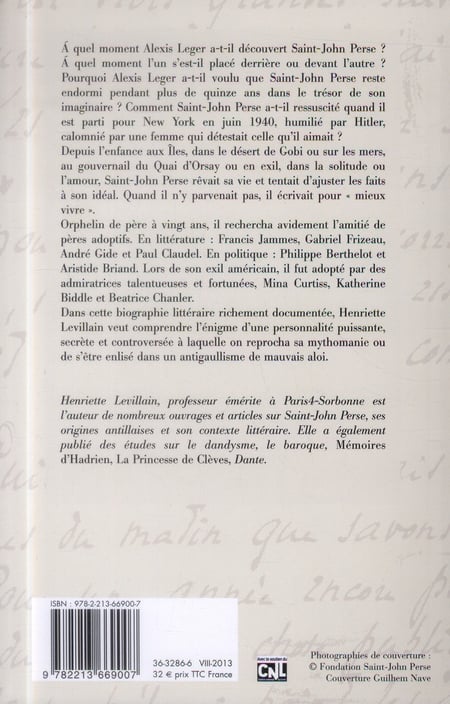 Á quel moment Alexis Leger a-t-il découvert Saint-John Perse ?
Á quel moment l'un s'est-il placé derrière ou devant l'autre ?
Pourquoi Alexis Leger a-t-il voulu que Saint-John Perse reste
endormi pendant plus de quinze ans dans le trésor de son
imaginaire ? Comment Saint-John Perse a-t-il ressuscité quand il
est parti pour New York en juin 1940, humilié par Hitler,
calomnié par une femme qui détestait celle qu'il aimait ?
Depuis l'enfance aux Îles, dans le désert de Gobi ou sur les mers,
au gouvernail du Quai d'Orsay ou en exil, dans la solitude ou
l'amour, Saint-John Perse rêvait sa vie et tentait d'ajuster les faits
à son idéal. Quand il n'y parvenait pas, il écrivait pour « mieux
vivre ».
Orphelin de père à vingt ans, il rechercha avidement l'amitié de
pères adoptifs. En littérature : Francis Jammes, Gabriel Frizeau,
André Gide et Paul Claudel. En politique : Philippe Berthelot et
Aristide Briand. Lors de son exil américain, il fut adopté par des
admiratrices talentueuses et fortunées, Mina Curtiss, Katherine
Biddle et Beatrice Chanler.
Dans cette biographie littéraire richement documentée, Henriette
Levillain veut comprendre l'énigme d'une personnalité puissante,
secrète et controversée à laquelle on reprocha sa mythomanie ou
de s'être enlisé dans un antigaullisme de mauvais aloi.
Henriette Levillain, professeur émérite à Paris4-Sorbonne est
l'auteur de nombreux ouvrages et articles sur Saint-John Perse, ses
origines antillaises et son contexte littéraire. Elle a également
publié des études sur le dandysme, le baroque, Mémoires
d'Hadrien, La Princesse de Clèves, Dante.
du matin que savons
année encore
ISBN : 978-2-213-66900-7
36-3286-6 VIII-2013
32 € prix TTC France
9 782213 669007
Avec le soutien du
CNL
Photographies de couverture :
© Fondation Saint-John Perse
Couverture Guilhem Nave